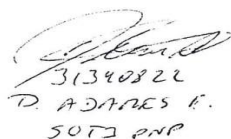 31340822
D. ADARES F.
SOT3 PNP